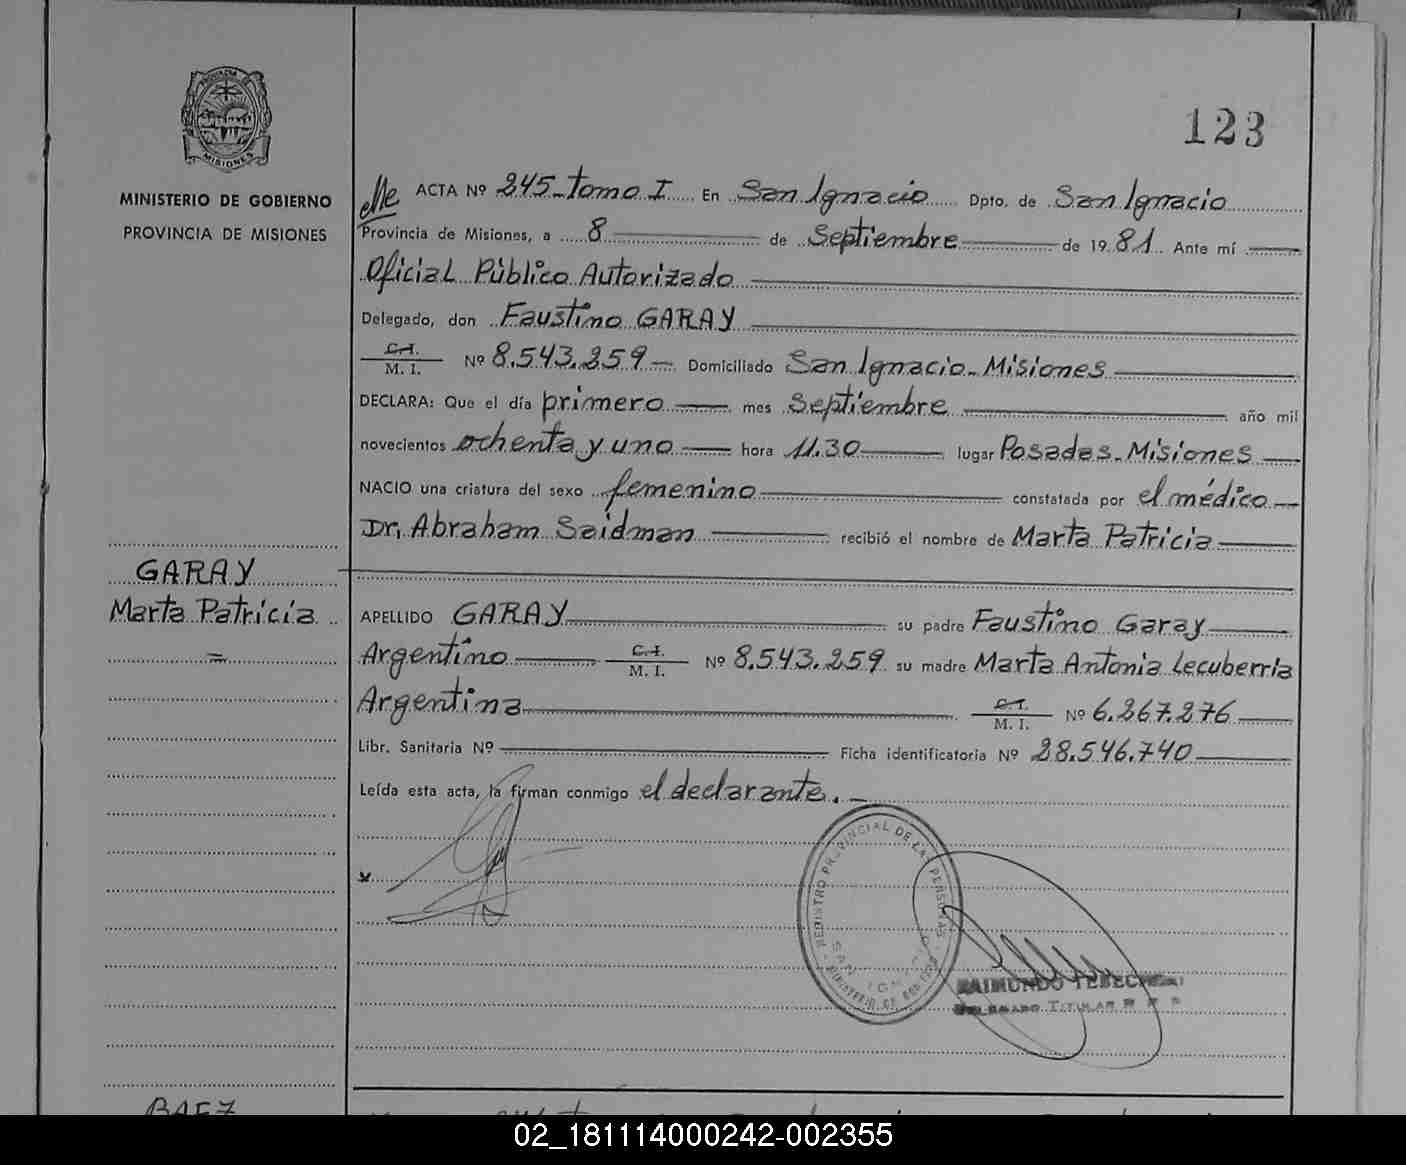 PROVINCIA DE
MISIONES
MINISTERIO DE GOBIERNO
PROVINCIA DE MISIONES
123
ACTA Nº 245 - tomo I En San Ignacio Dpto. de San Ignacio
Provincia de Misiones, a 8 de Septiembre de 1981 Ante mí
Oficial Público Autorizado
Delegado, don Faustino GARAY
C.I.
M. I. Nº 8.543.259 - Domiciliado San Ignacio - Misiones
DECLARA: Que el día primero mes Septiembre año mil
novecientos ochenta y uno hora 11.30 lugar Posadas - Misiones
NACIO una criatura del sexo femenino constatada por el médico
Dr. Abraham Saidman recibió el nombre de Marta Patricia
GARAY
Marta Patricia
APELLIDO GARAY su padre Faustino Garay
Argentino C.I. M. I. Nº 8.543.259 su madre Marta Antonia Lecuberria
Argentina C.I. M. I. Nº 6.267.276
Libr. Sanitaria Nº Ficha identificatoria Nº 28.546.740
Leída esta acta, la firman conmigo el declarante. -
REGISTRO PROVINCIAL DE LAS PERSONAS
SAN IGNACIO
MINISTERIO DE GOBIERNO
RAIMUNDO
DELEGADO TITULAR
BAEZ
02_181114000242-002355